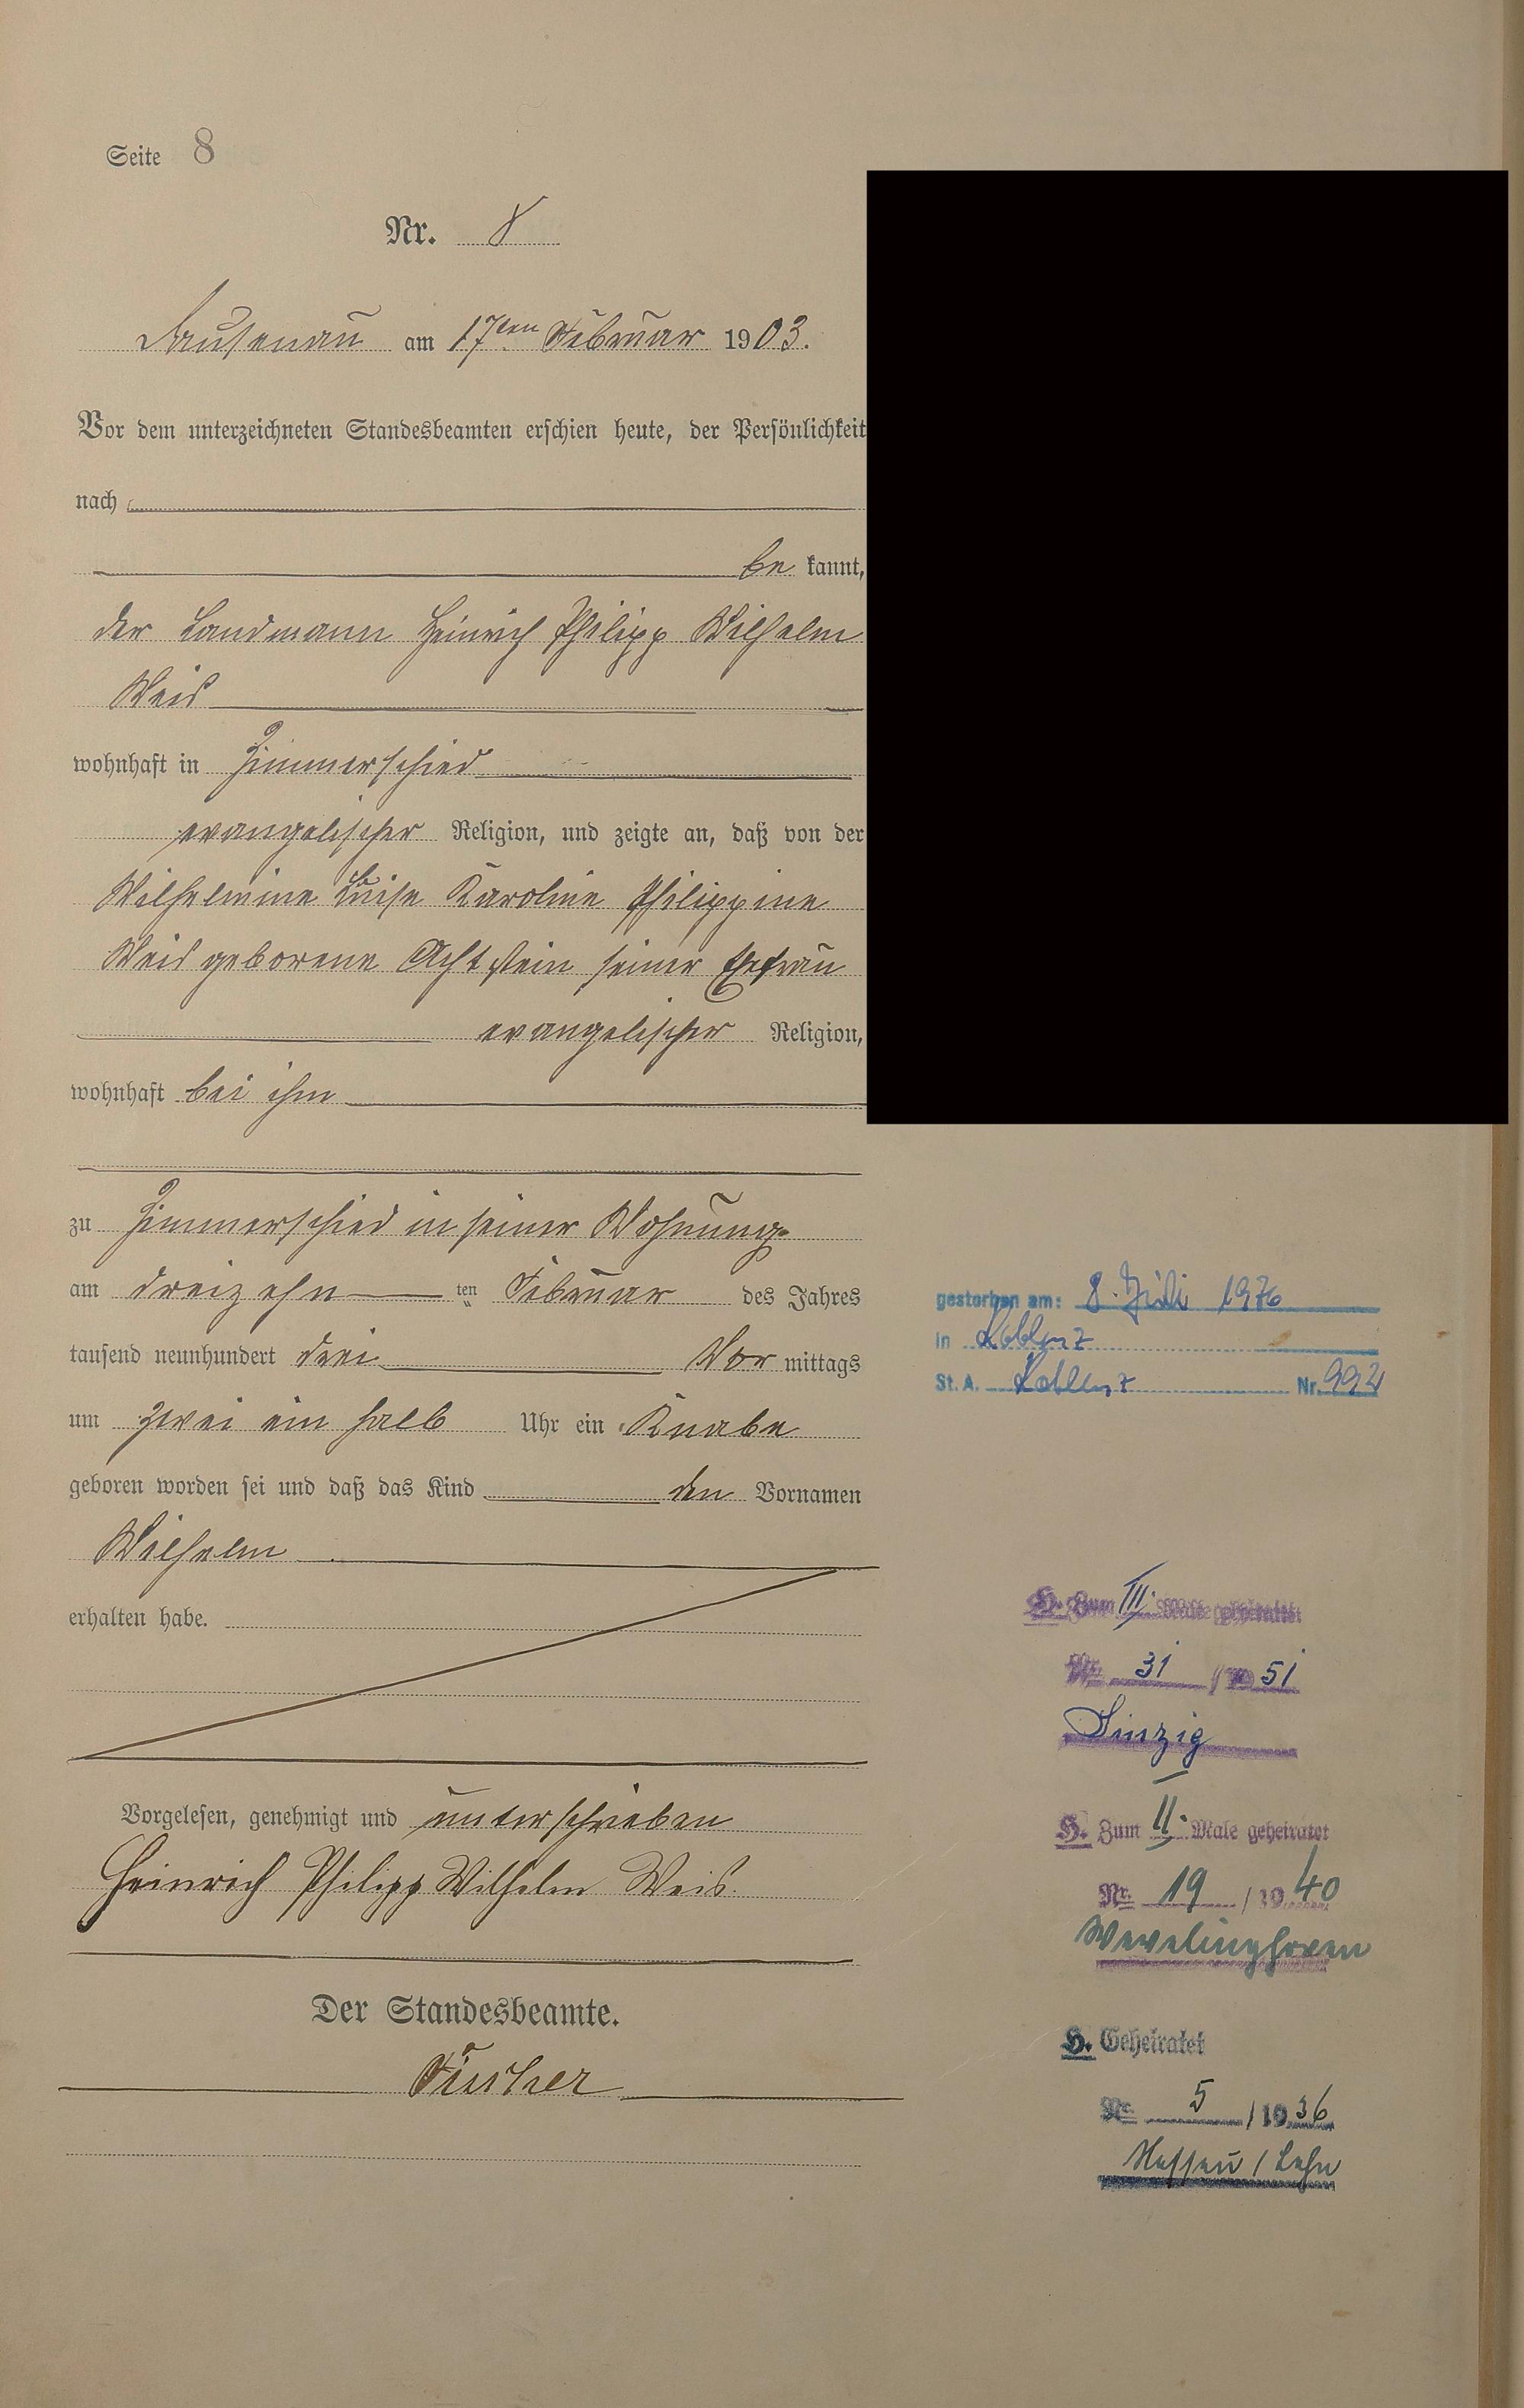 Seite 8
Nr. 8
Dausenau am 17ten Februar 1903.
Vor dem unterzeichneten Standesbeamten erschien heute, der Persönlichkeit
nach
be kannt,
der Landmann Heinrich Philipp Wilhelm
Weis
wohnhaft in Zimmerschied
evangelischer Religion, und zeigte an, daß von der
Wilhelmine Luise Karoline Philippine
Weis geborene Achtstein seiner Ehefrau
evangelischer Religion,
wohnhaft bei ihm
zu Zimmerschied in seiner Wohnung
am dreizehn ten Februar des Jahres
tausend neunhundert drei Vor mittags
um zwei ein halb Uhr ein Knabe
geboren worden sei und daß das Kind den Vornamen
Wilhelm
erhalten habe.
Vorgelesen, genehmigt und unterschrieben
Heinrich Philipp Wilhelm Weis.
Der Standesbeamte.
gestorben am: 8. Juli 1976
in Koblenz
St. A. Koblenz Nr. 992
H. Zum III. Male geheiratet
Nr. 31 / 19 51
Sinzig
H. Zum II. Male geheiratet
Nr. 19 / 19 40
Wevelinghoven
H. Geheiratet
Nr. 5 / 19 36
Nassau / Lahn